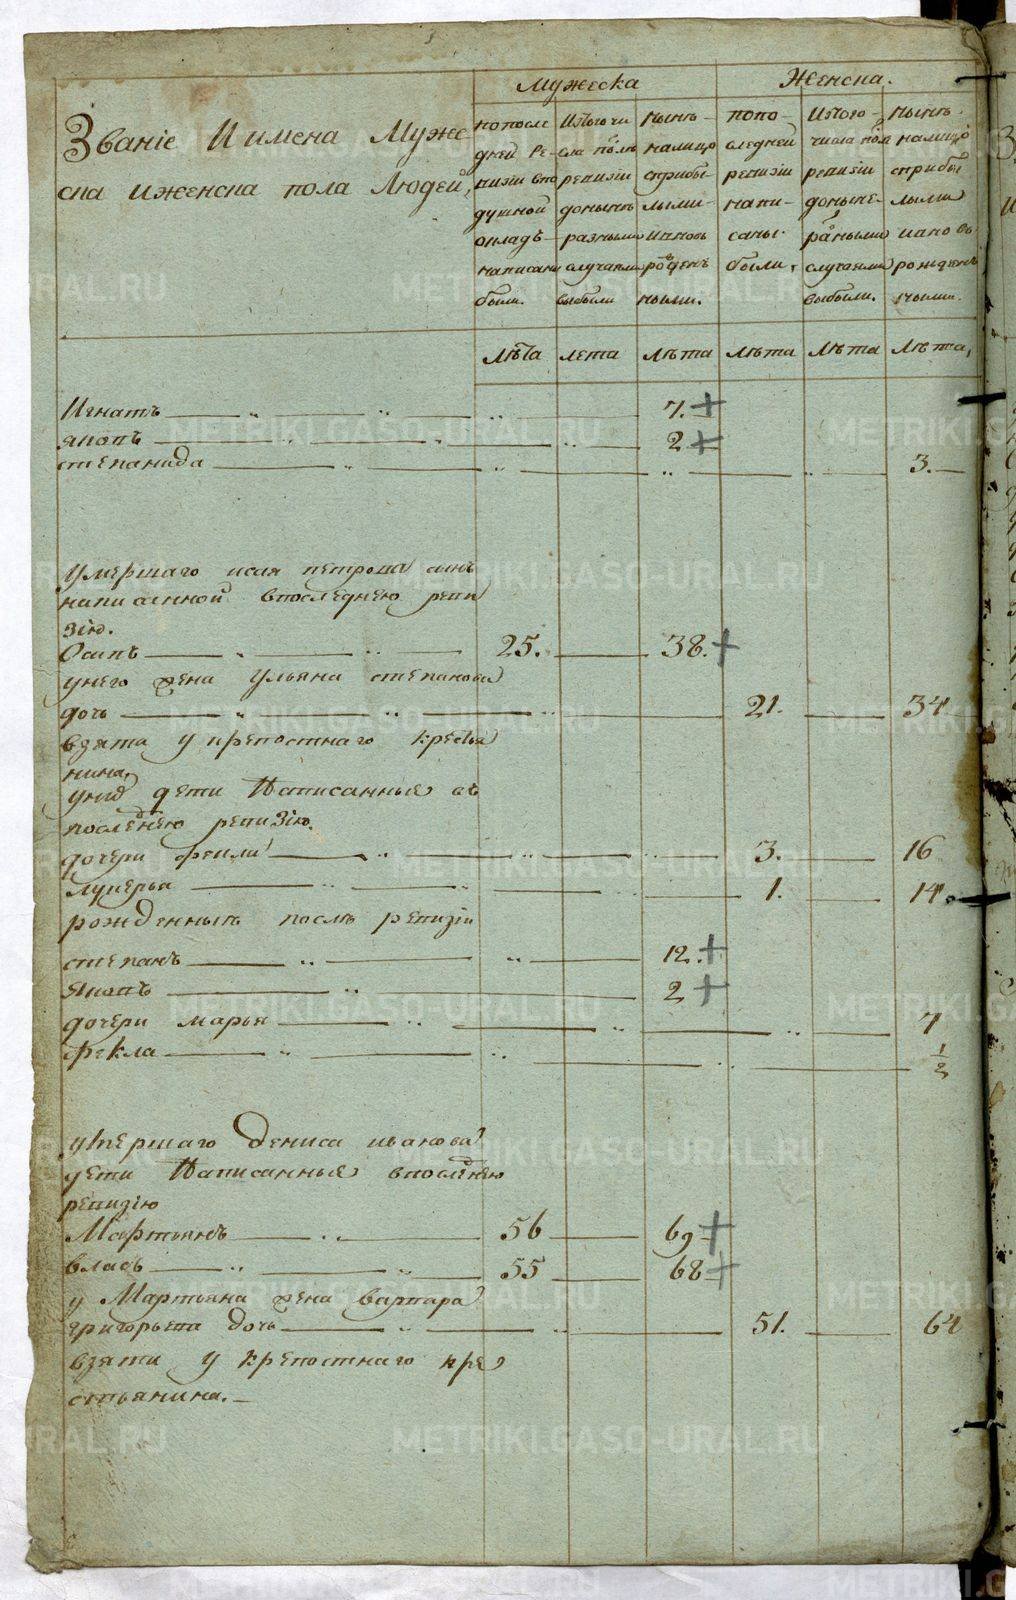 Мужеска Женска.
Званіе И имена Муже
ска и женска пола Людей,
по после
дней Ре-
визіи впо
душной
окладъ
написани
были.
Изтого чи
сла поль
ревизіи
доныне
разными
случаями
выбыли
Нынѣ
налицо
сприбы-
лыми-
иновь
рожден
ными.
попо-
следней
ревизіи
напи-
саны
были,
Изтого-
числа пол
ревизіи
доныне-
разными
случаями
выбыли.
Нынѣ
налицо
сприбы
лыми
иановь
рожден
ными.
Лѣта лета лѣта лѣта лѣта лѣта,
Игнатъ 7.
яковъ 2
степанида 3.
умершаго исая петрова сынъ
написанной впоследнею реви
зію.
Осипъ 25. 38.
унего жена Ульяна степанова
дочь 21. 34
взята у крепостнаго кресья
нина,
унид дети Написанные въ
последнею ревизію.
дочери фекла 3. 16
лукерья 1. 14.
рожденные послѣ ревизіи
степанъ 12.
Яковъ 2
дочери марья 7
фекла 1/2
умершаго Дениса иванова
дети Написанные впоследнею
ревизію
Мартьянъ 56 69
власъ 55 68
у Мартьяна жена варвара
григорьева дочь 51. 64
взята у крепостнаго кре
стьянина.
METRIKI.GASO-URAL.RU